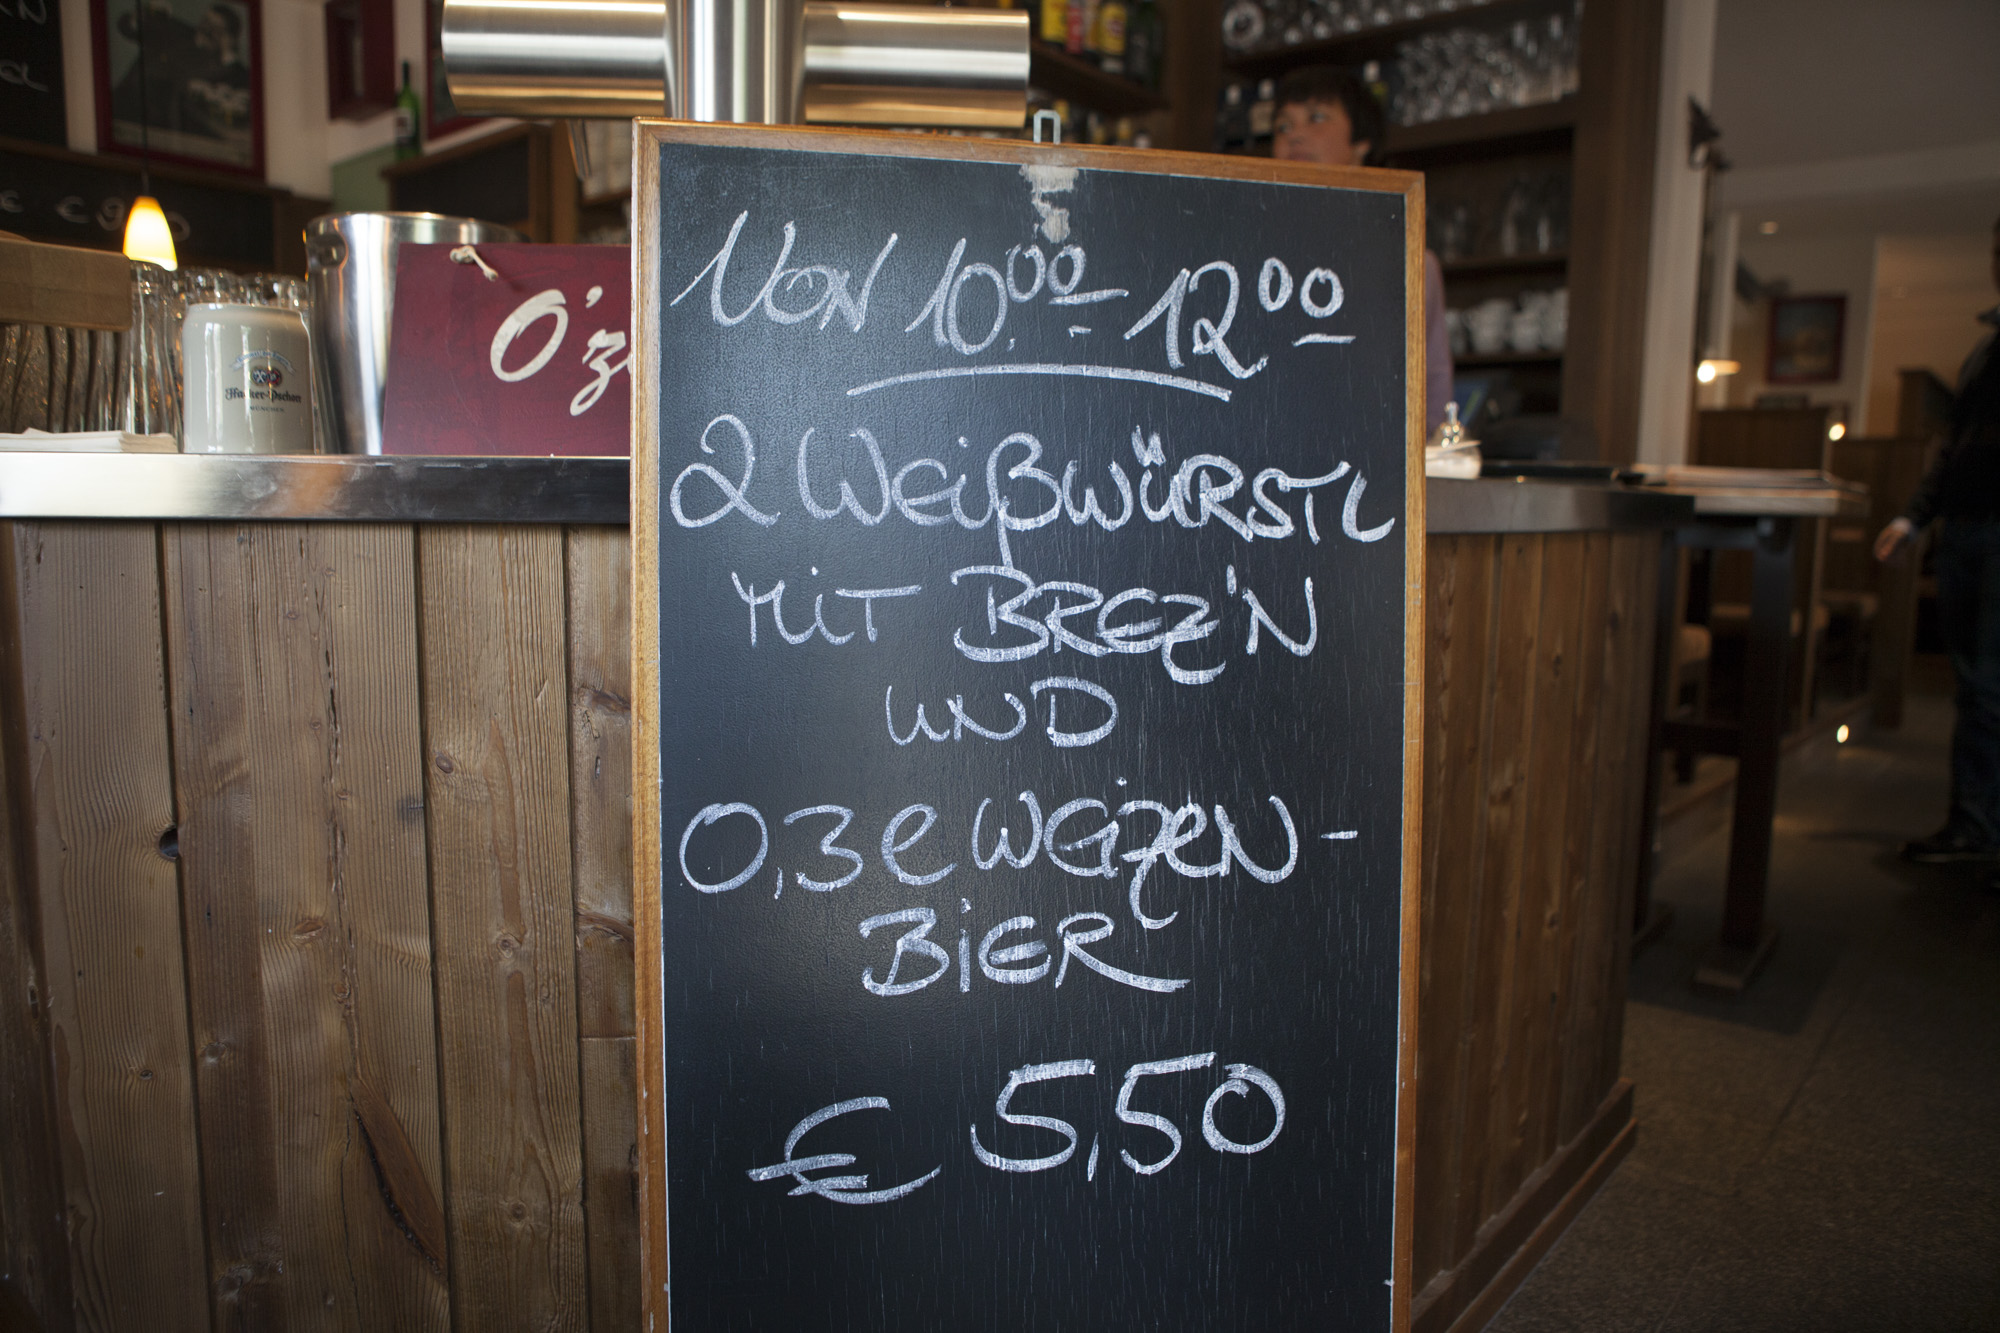 € 9
O'z
Hacker-Pschorr
MÜNCHEN
VON 10.00 - 12 00
2 WEIßWÜRSTL
MIT BREZ'N
UND
0,3 l WEIZEN-
BIER
€ 5,50